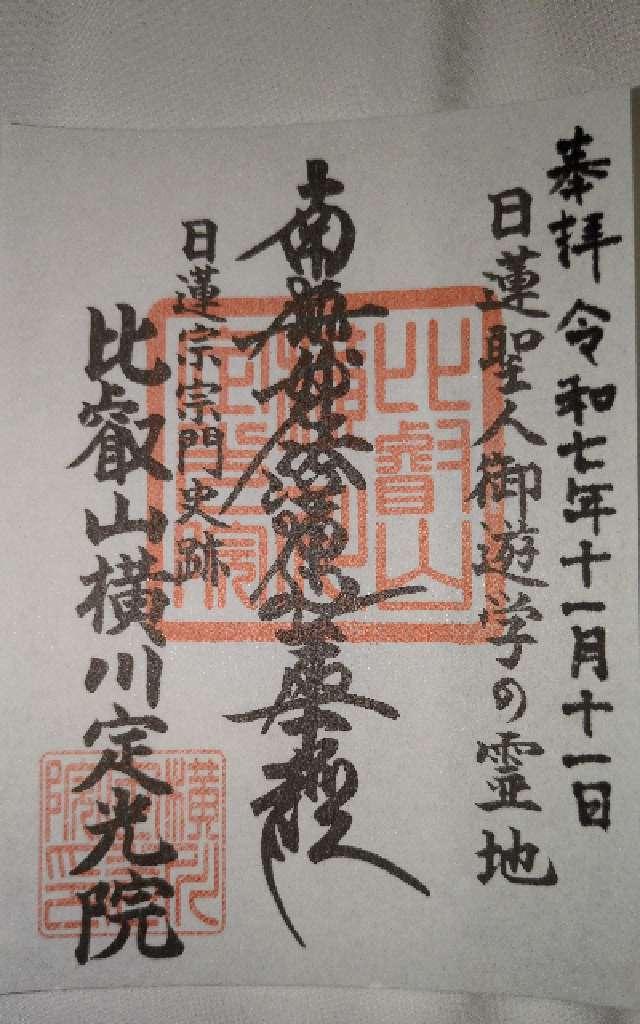 奉拝 令和七年十一月十一日
日蓮聖人御遊学の霊地
南無妙法蓮華経
日蓮宗宗門史跡
比叡山横川定光院